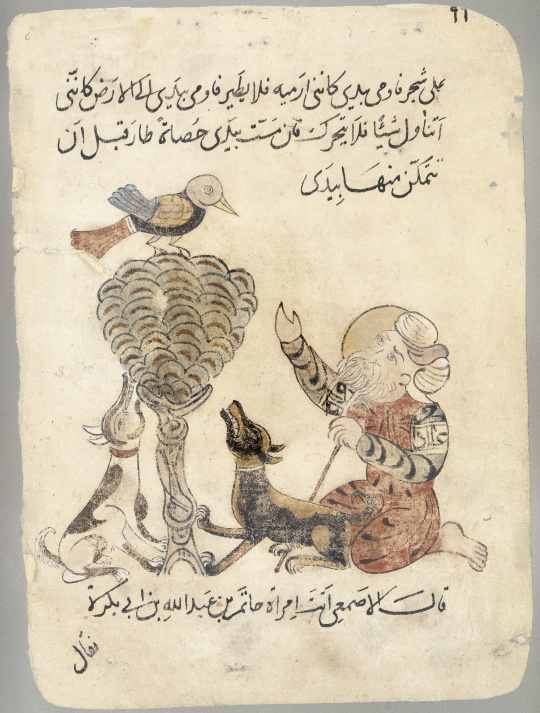 ٩١
على شجر فاومى بيدي كانني ارميه فلا يطير فاومى بيدي الى الارض كانني
اتناول شيئا فلا يتحرك فان مست بيدى حصاة طار قبل ان
تتمكن منها بيدى
قال الاصمعي اتت امراة حاتم بن عبد الله بن ابي بكرة
فقال